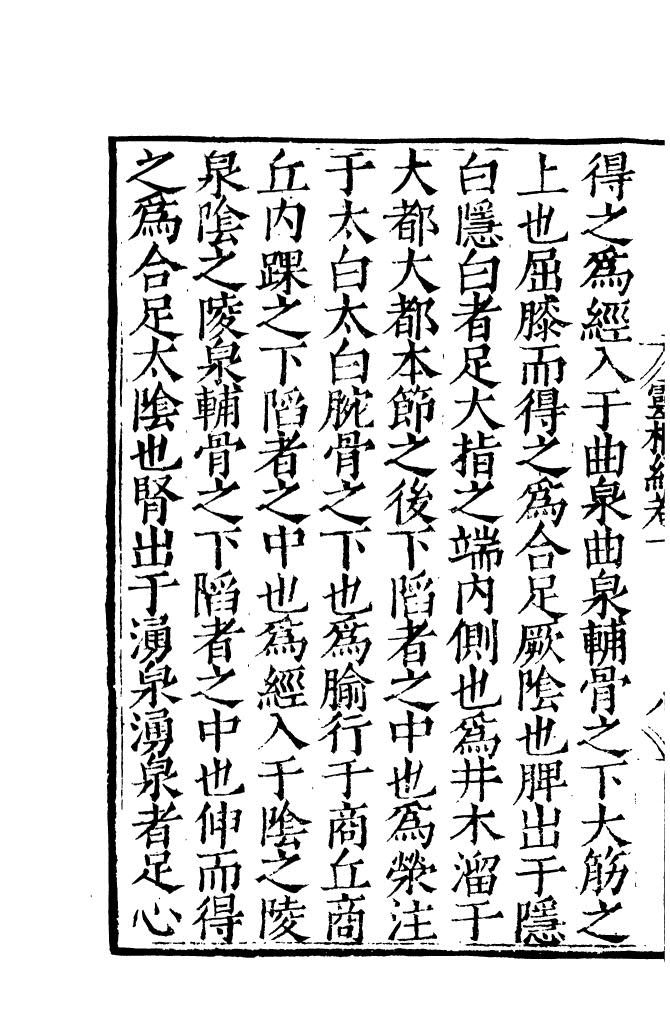 得之爲經入于曲泉曲泉輔骨之下大筋之
上也屈膝而得之爲合足厥陰也脾出于隱
白隱白者足大指之端内側也爲井木溜于
大都大都本節之後下䧟者之中也爲滎注
于太白太白腕骨之下也爲腧行于商丘商
丘内踝之下䧟者之中也爲經入于陰之陵
泉陰之陵泉輔骨之下䧟者之中也伸而得
之爲合足太陰也腎出于湧泉湧泉者足心